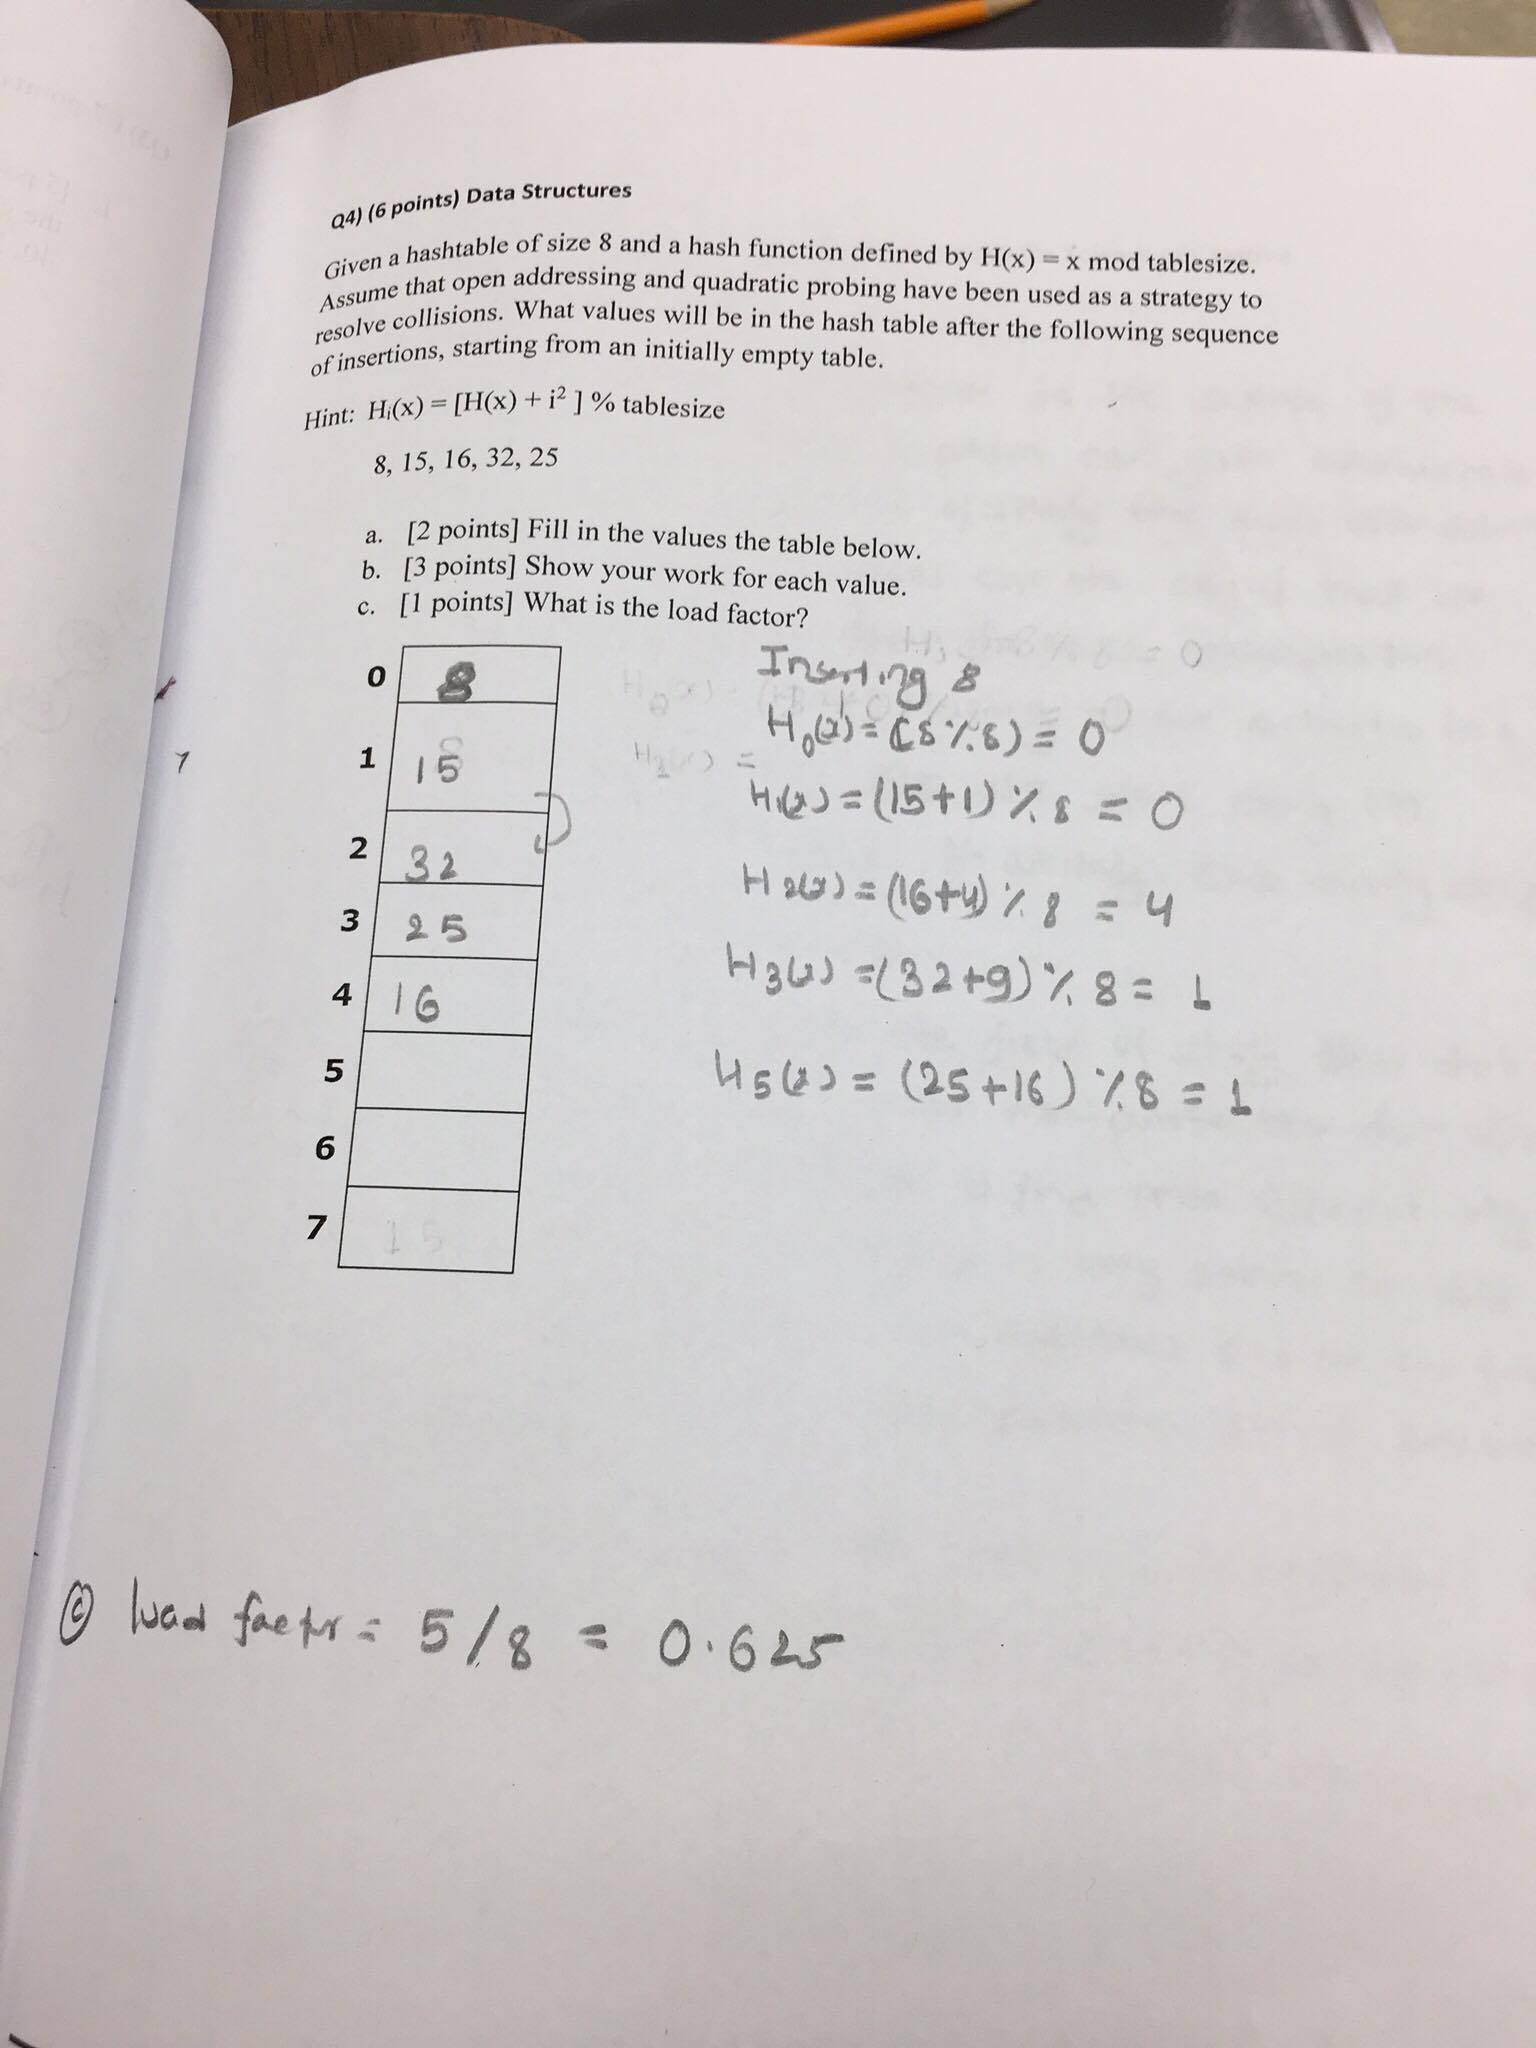 Q4) (6 points) Data Structures
Given a hashtable of size 8 and a hash function defined by H(x) = x mod tablesize.
Assume that open addressing and quadratic probing have been used as a strategy to
resolve collisions. What values will be in the hash table after the following sequence
of insertions, starting from an initially empty table.
Hint: Hᵢ(x) = [H(x) + i² ] % tablesize
8, 15, 16, 32, 25
a. [2 points] Fill in the values the table below.
b. [3 points] Show your work for each value.
c. [1 points] What is the load factor?
0 8
1 15
2 32
3 25
4 16
5
6
7 15
Inserting 8
H₀(x) = (8 % 8) = 0
H₁(x) = (15+1) % 8 = 0
H₂(x) = (16+4) % 8 = 4
H₃(x) = (32+9) % 8 = 1
H₅(x) = (25+16) % 8 = 1
ⓒ load factor = 5/8 = 0.625